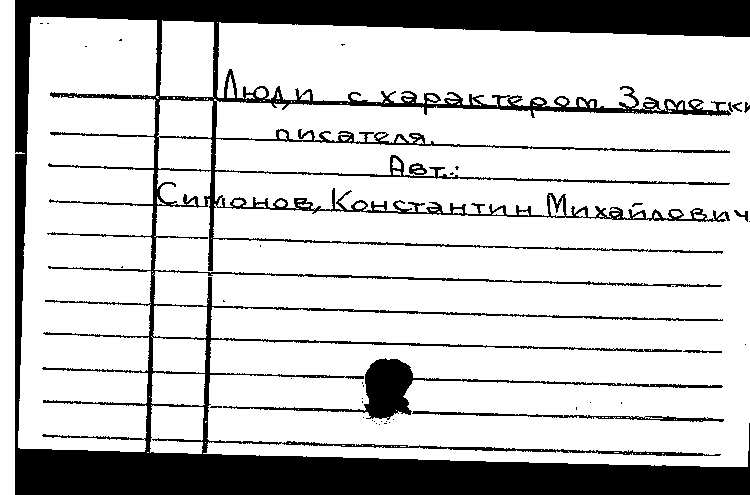 Люди с характером. Заметки
писателя.
Авт.:
Симонов, Константин Михайлович